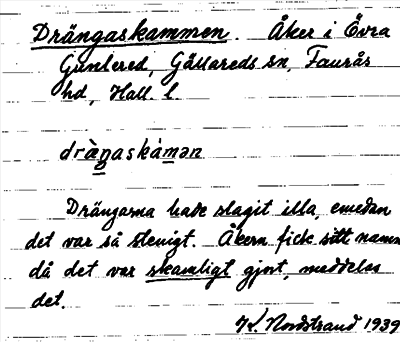 Drängaskammen. Åker i Övra
Gunnered, Gällareds sn, Faurås
hd, Hall. l.
dràŋaskàmən
Drängarna hade slagit illa, emedan
det var så stenigt. Åkern fick sitt namn
då det var skamligt gjort, meddelas
det.
Nordstrand 1939